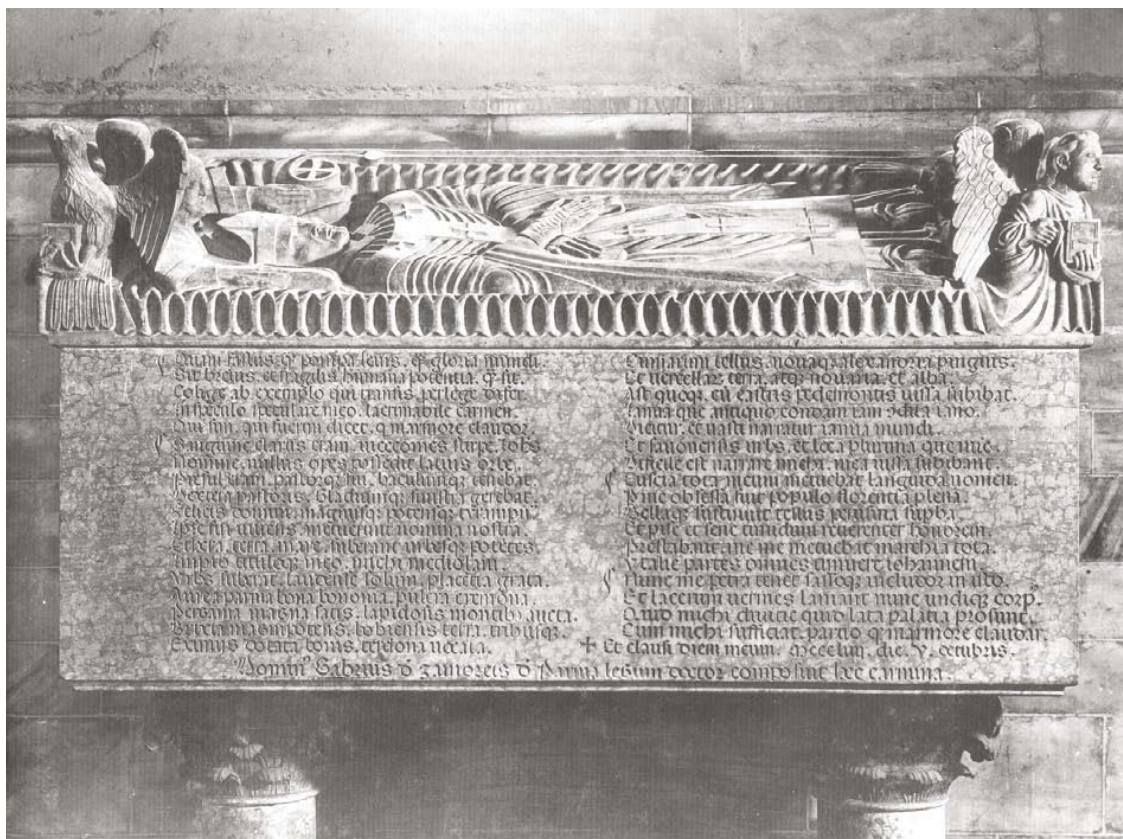 Quam fastus, q̄ pompa levis, q̄ gloria mundi.
Sit brevis, et fragilis humana potentia, q̄ sit.
Collige ab exemplo qui transis, perlege differ.
In speculo speculare meo, lacrimabile carmen.
Qui sim, qui fuerim dicet, q̄ marmore claudor.
Sanguine clarus eram, vicecomes stirpe, Iohs
Nomine, nullus opes possedit latius orbe,
Presul eram, pastorq; fui, baculumq; tenebat.
Dextera pastoris, gladiumq; sinistra gerebat.
domini, magnusq; potensq;
Ipse fui vivens, metuerunt nomina nostra.
Ethera, terra, mare, suberant urbesq; potētes.
Imperio titulisq; meo, michi mediolani.
Urbs subiit, laudense solum, placētia grata.
Aurea parma bona bononia, pulcra cremona.
Pergama magna satis, lapidosis montibꝰ aucta.
Brixia magnipotens, bobiensis terra, tribusq;
Eximiis dotata bonis, terdona vocata.
Cumarum tellus, novaq; alexandria pinguis.
Et vercellarum terra, atq; novaria, et alba.
Ast quoq; cū castris pedemontis iussa subibat.
Ianua que antiquo condam iam condita iano.
Dicitur, et vasti narratur ianua mundi.
Et savonensis urbs, et loca plurima que nunc
Difficile est narrare michi, mea iussa subibant.
Tuscia tota meum metuebat languida nomen.
P me obsessa fuit populo florentia plena.
Bellaq; sustinuit tellus perusina supba
Et pise et sene timidum reverenter honorem
Prestabant, me me metuebat marchia tota.
Ytalie partes omnes timuere iohannem
Nunc me petra tenet saxoq; includor in isto.
Et lacerum vermes laniant nunc undiq; corpꝰ.
Quid michi divitie quid lata palatia prosunt.
Cum michi sufficiat parvo q̄ marmore claudar.
+ Et clausi diem meum. Mcccliiij. die. V. octubris.
Domin⁹ Gabrius d̄ zamoreis d̄ Parma legum doctor composuit hec carmina.